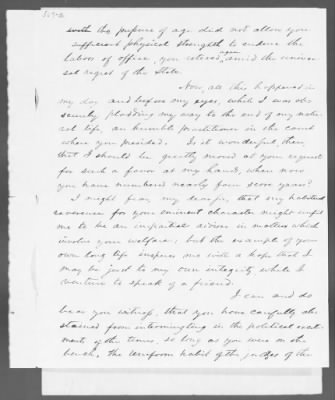 with the pressure of age did not allow you
sufficient physical strength to endure the
labors of office, you retired again, amid the univer-
sal regret of the State.
Now, all this happened in
my day and before my eyes, while I was ob-
scurely plodding my way to the end of my natu-
ral life, an humble practitioner in the court
where you presided. Is it wonderful, then,
that I should be greatly moved at your request
for such a favor at my hand, when now
you have numbered nearly four score years?
I might fear, my dear sir, that my habitual
reverence for your eminent character might unfit
me to be an impartial adviser in matters which
involve your welfare; but the example of your
own long life inspires me with a hope that I
may be just to my own integrity while I
venture to speak of a friend.
I can and do
bear you witness, that you have carefully ab-
stained from intermingling in the political excite-
ments of the times, so long as you were on the
bench, the uniform habit of the judges of the